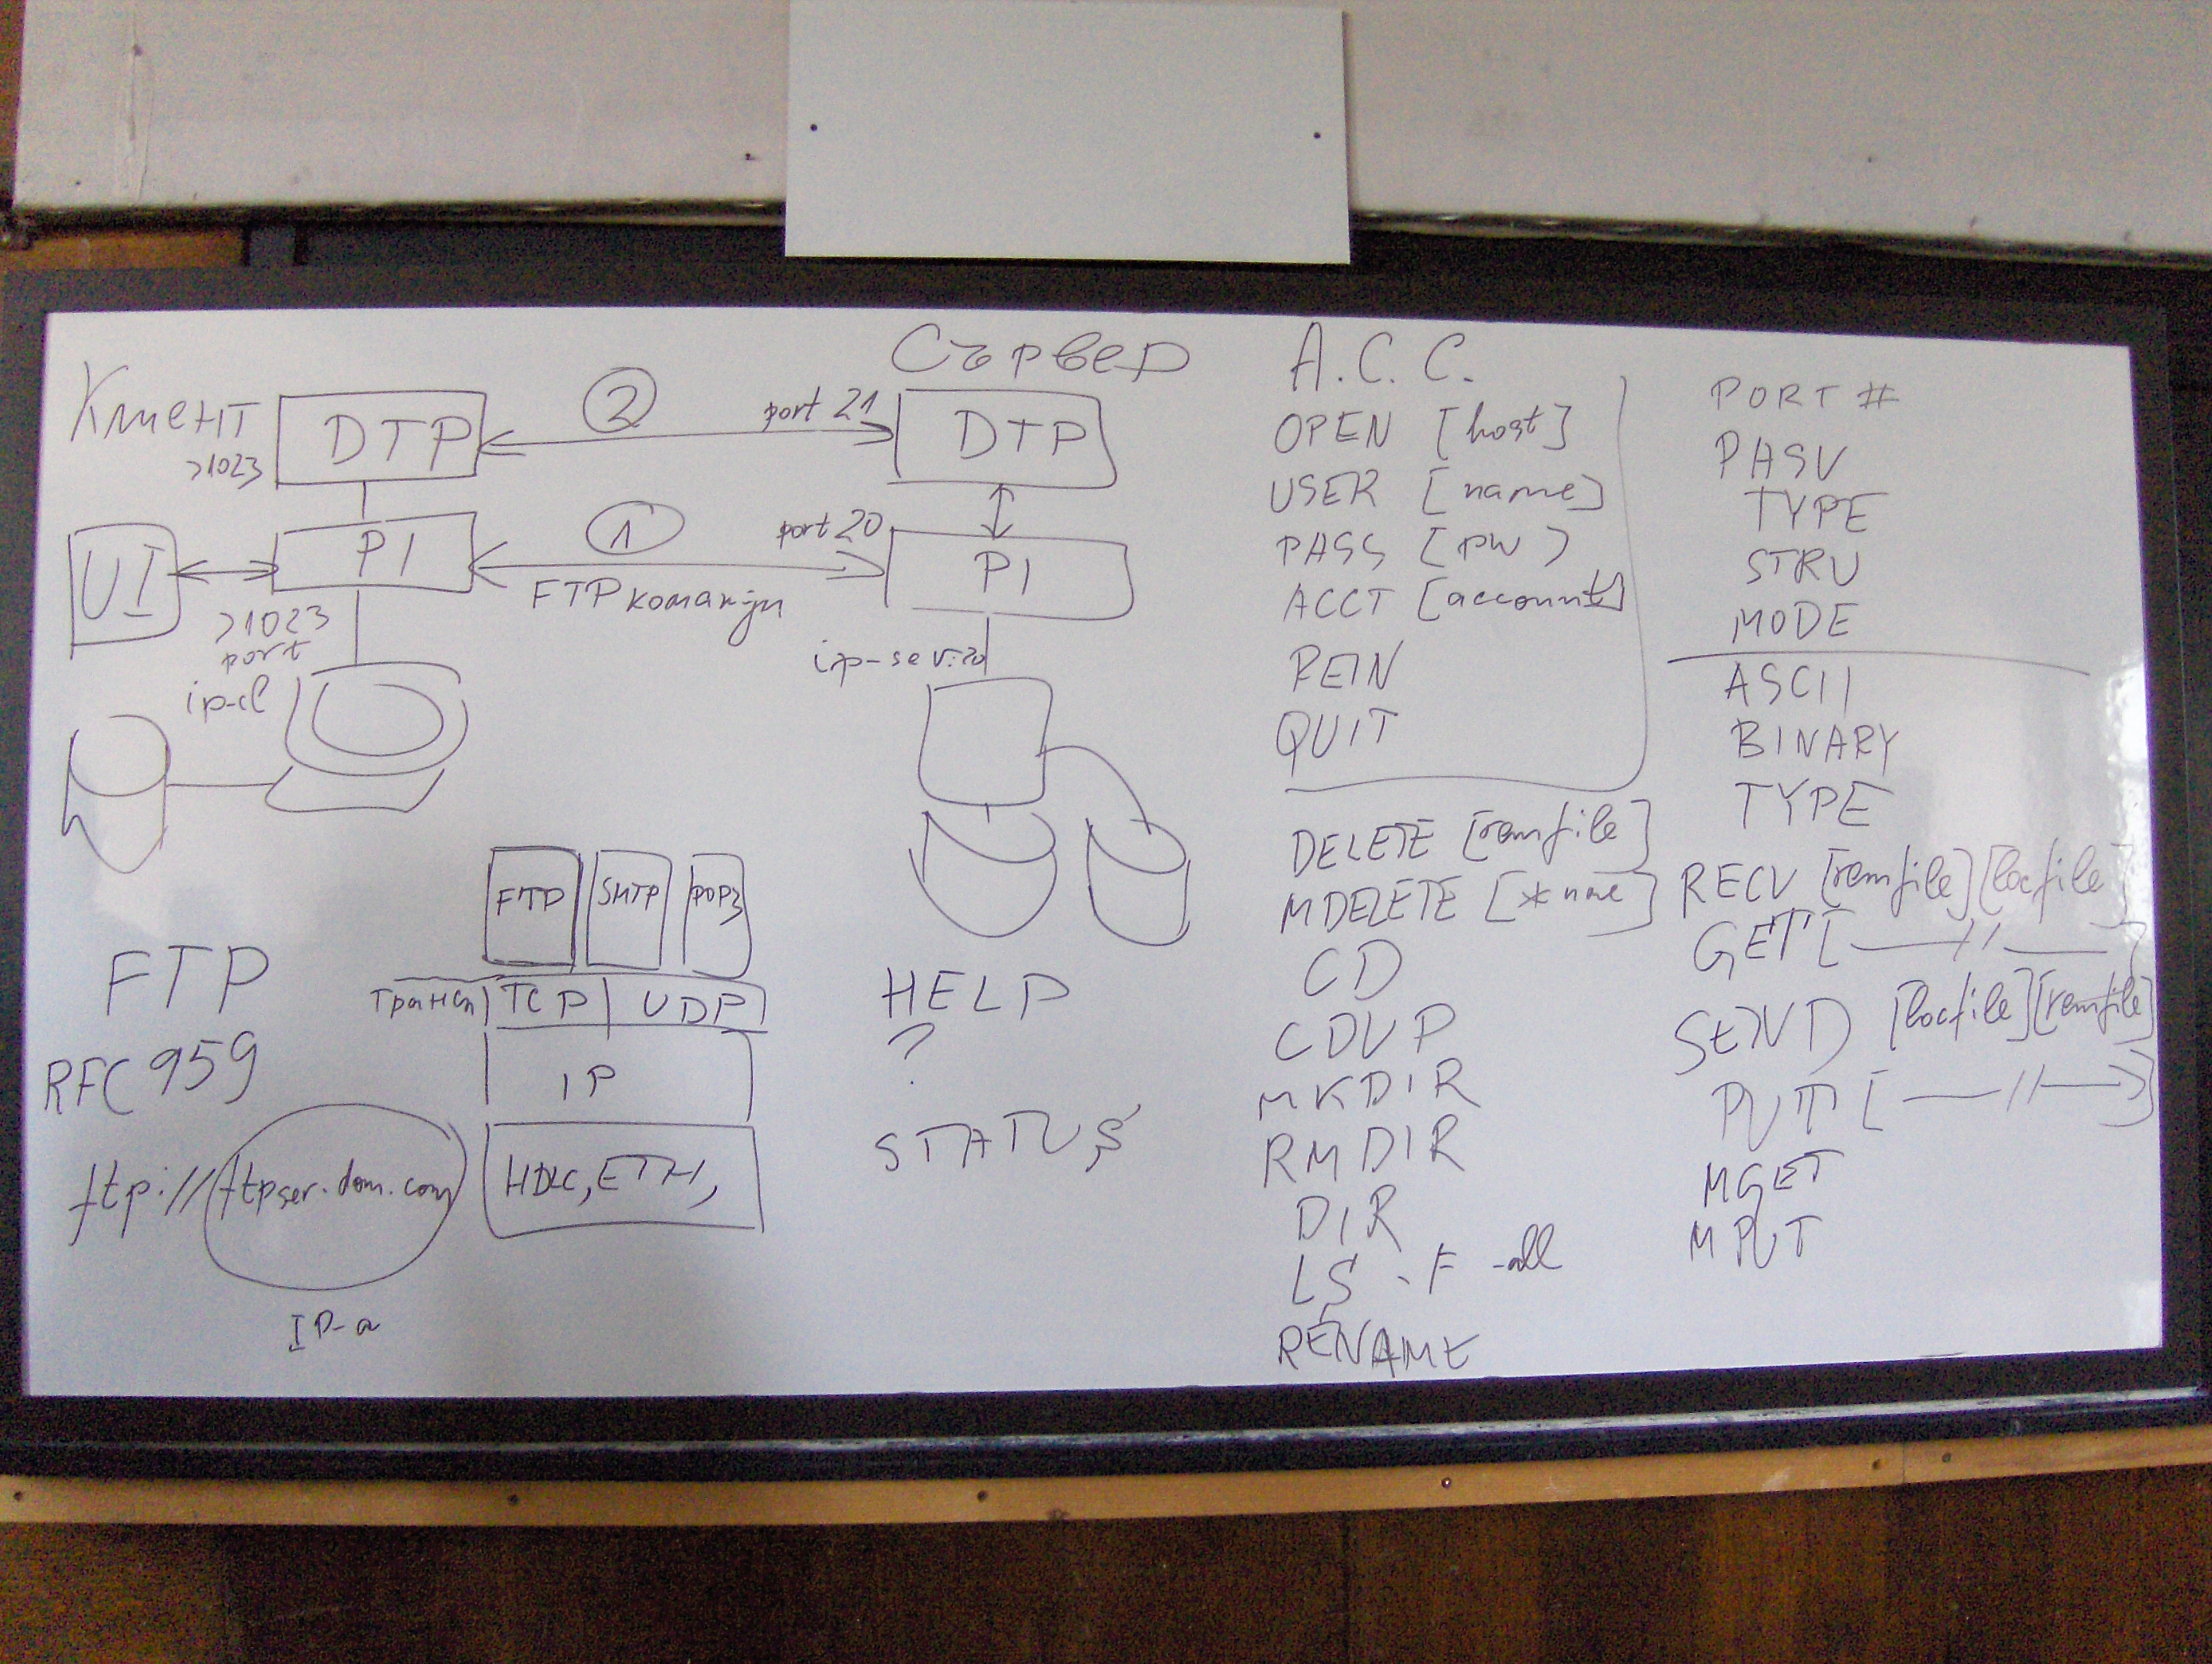 Клиент
>1023
DTP
2
port 21
Сървер
DTP
UI
PI
1
port 20
FTP команди
PI
>1023
port
ip-cl
FTP
RFC 959
ftp://ftpser.dom.com
IP-a
FTP SMTP POP3
Трансп TCP UDP
IP
HDLC, ETH,
HELP
?
STATUS
A.C.C.
OPEN [host]
USER [name]
PASS [pw]
ACCT [account]
REIN
QUIT
DELETE [remfile]
MDELETE [*
CD
CDUP
MKDIR
RMDIR
DIR
LS -F -all
RENAME
PORT #
PASV
TYPE
STRU
MODE
ASCII
BINARY
TYPE
RECV [remfile][locfile]
GET [—//—]
SEND [locfile][remfile]
PUT [—//—]
MGET
MPUT